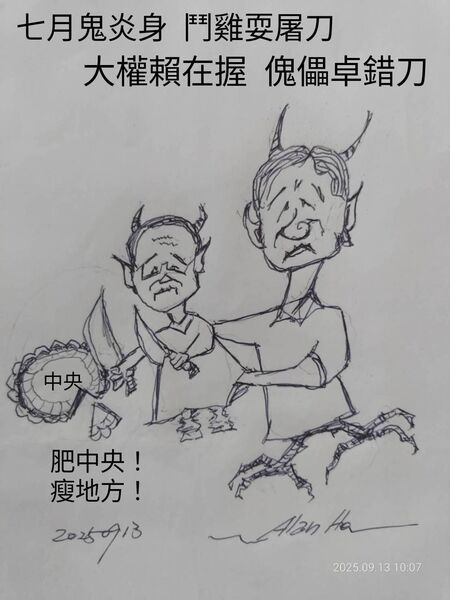 七月鬼炎身 鬥雞耍屠刀
大權賴在握 傀儡卓錯刀
中央
肥中央！
瘦地方！
20250913
Alan Ho
2025.09.13 10:07